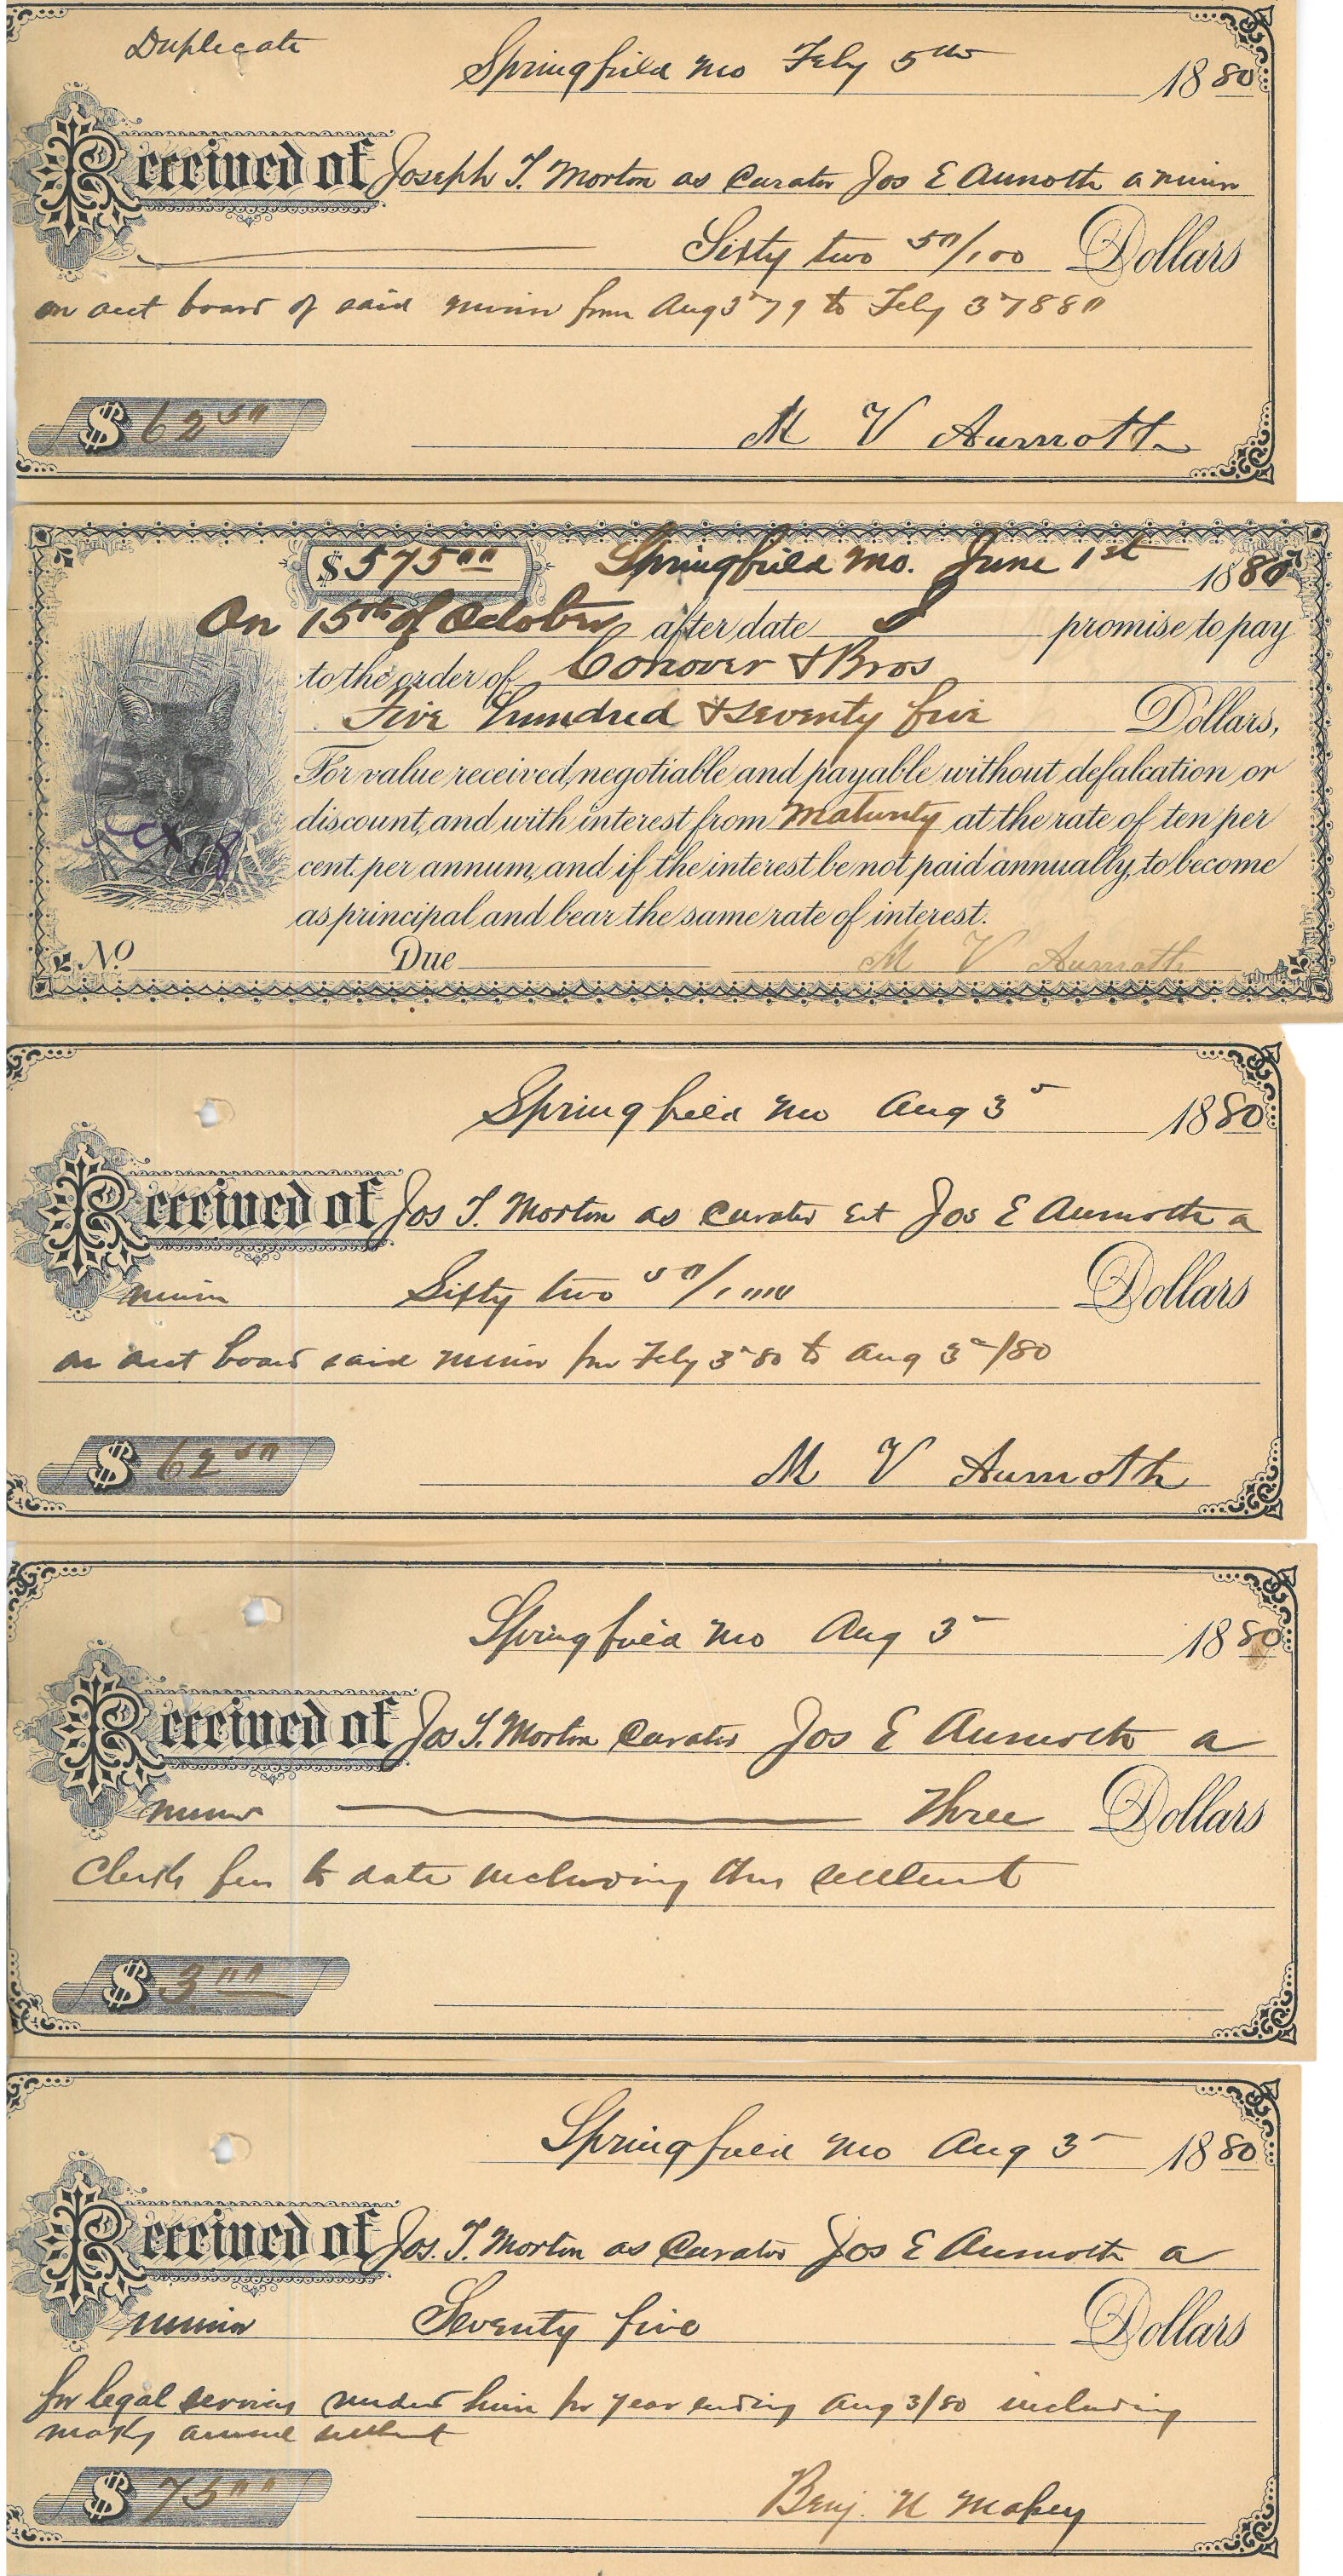 Duplicate
Springfield Mo Feby 5th 1880
Received of Joseph T. Morton as Curator Jos E Aumoth a minor
Sixty two 50/100 Dollars
on acct board of said minor from Aug 3 79 to Feby 3 1880
$ 62 50
M V Aumoth
$ 575 00 Springfield Mo. June 1st 1880
On 15th of October after date I promise to pay
to the order of Conover & Bros
Five hundred & seventy five Dollars,
For value received, negotiable and payable without defalcation or
discount, and with interest from Maturity at the rate of ten per
cent. per annum, and if the interest be not paid annually, to become
as principal, and bear the same rate of interest.
No. Due M V Aumoth
Springfield Mo Aug 3 1880
Received of Jos T. Morton as Curator Est Jos E Aumoth a
minor Sixty two 50/100 Dollars
on acct board said minor from Feby 3 80 to Aug 3/80
$ 62 50
M V Aumoth
Springfield Mo Aug 3 1880
Received of Jos T. Morton Curator Jos E Aumoth a
minor Three Dollars
Clerks fees to date including this settlemt
$ 3 00
Springfield Mo Aug 3 1880
Received of Jos. T. Morton as Curator Jos E Aumoth a
minor Seventy five Dollars
for legal services under him for year ending Aug 3/80 including
making annual settlemt
$ 75 00
Benj. U Massey